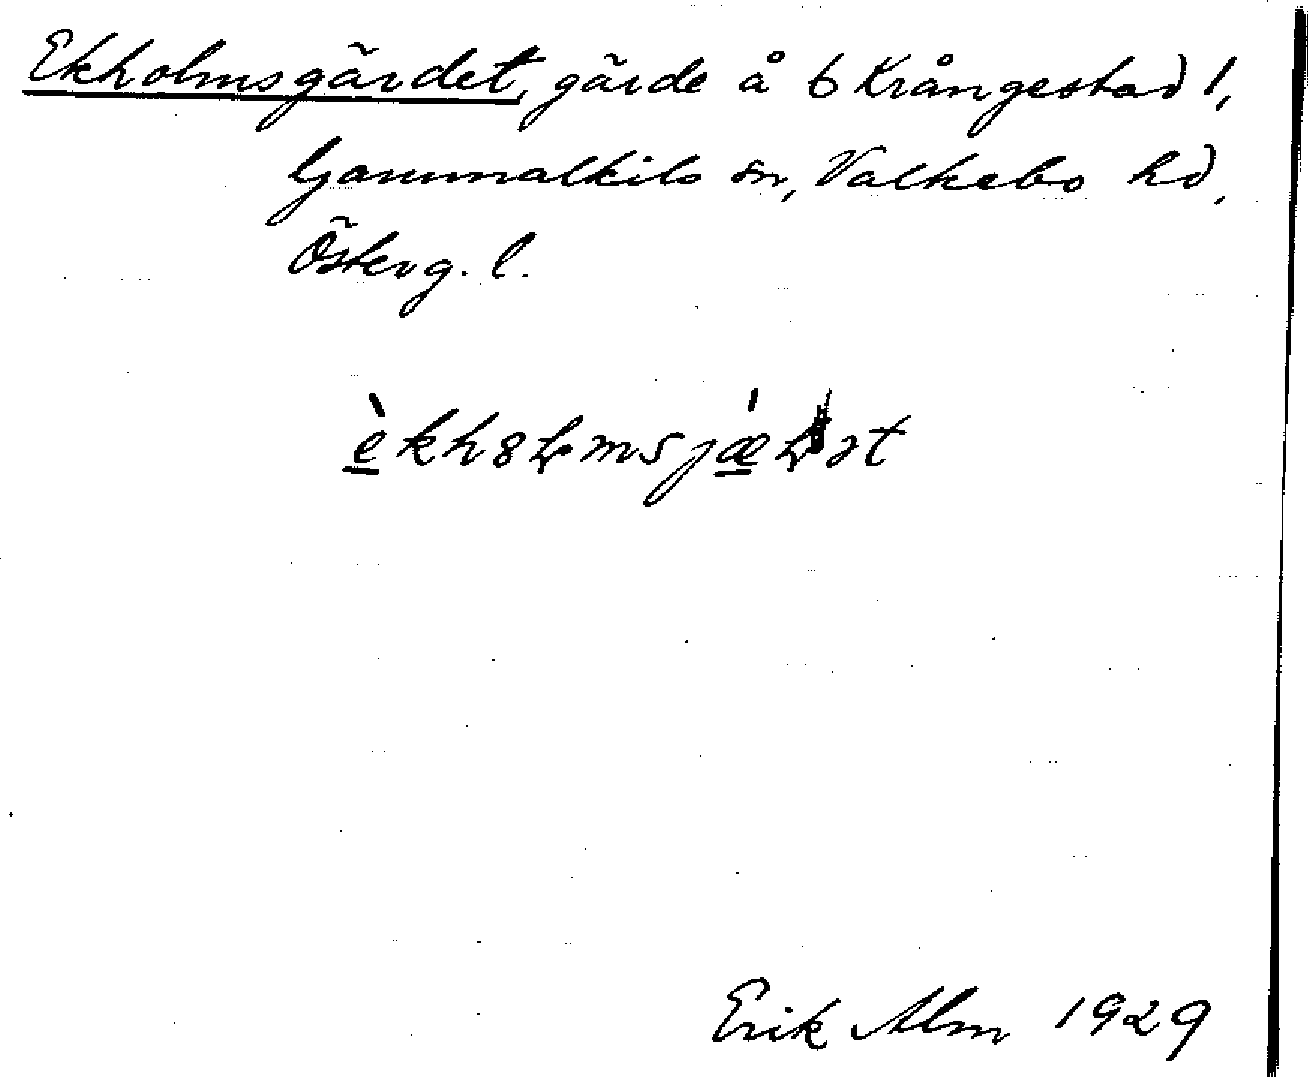 Ekholmsgärdet, gärde å b Krångestad 1,
Gammalkils sn, Valkebo hd,
Österg. l.
Erik Alm 1929